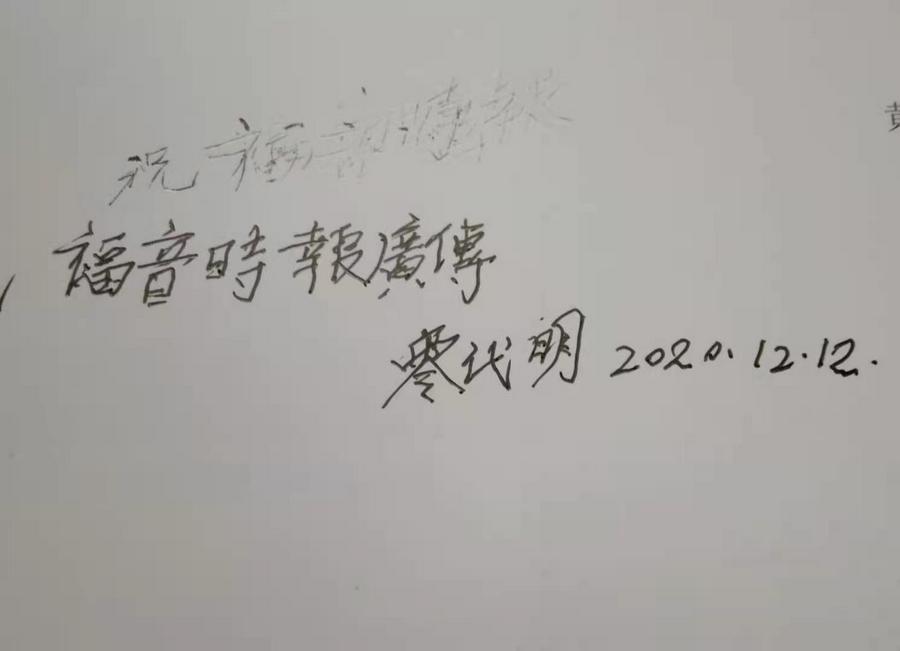 祝福音時報
福音時報廣傳
零代明 2020.12.12.